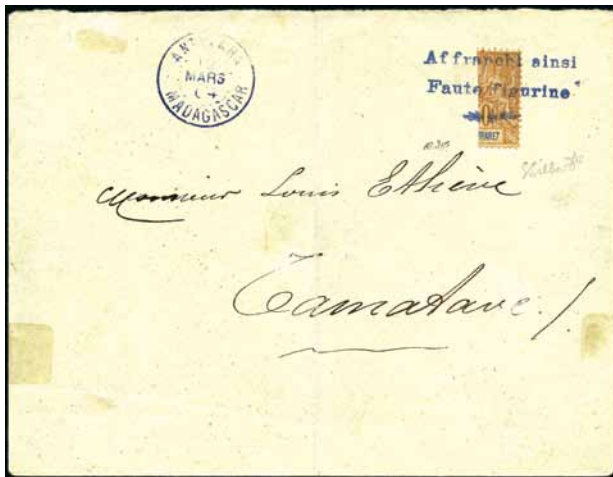 MARS
04
MADAGASCAR
Affranchi ainsi
Faute figurine
Monsieur Louis Ethève
Tamatave /